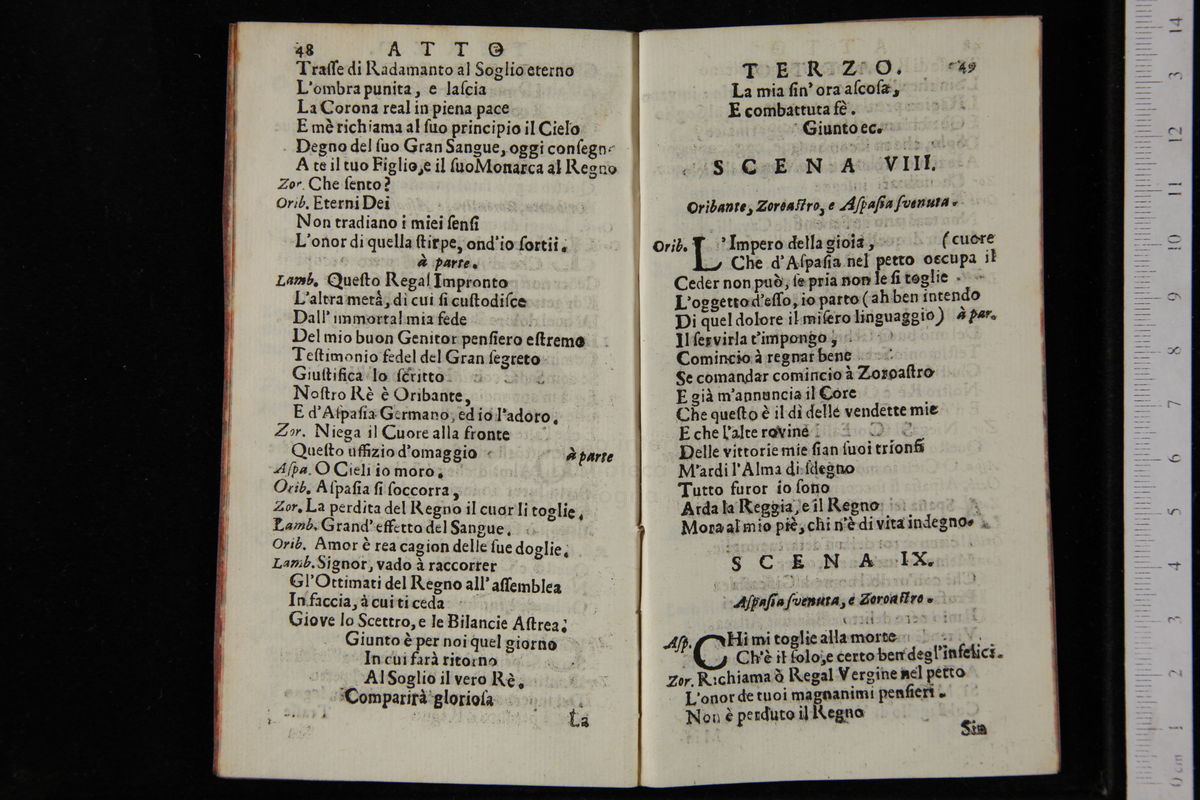 48 ATTO
Traſſe di Radamanto al Soglio eterno
L'ombra punita, e laſcia
La Corona real in piena pace
E mè richiama al ſuo principio il Cielo
Degno del ſuo Gran Sangue, oggi conſegna
A te il tuo Figlio, e il ſuo Monarca al Regno
Zor. Che ſento?
Orib. Eterni Dei
Non tradiano i miei ſenſi
L'onor di quella ſtirpe, ond'io ſortii.
à parte.
Lamb. Queſto Regal Impronto
L'altra metà, di cui ſi cuſtodiſce
Dall' immortal mia fede
Del mio buon Genitor penſiero eſtremo
Teſtimonio fedel del Gran ſegreto
Giuſtifica lo ſcritto
Noſtro Rè è Oribante,
E d'Aſpaſia Germano, ed io l'adoro.
Zor. Niega il Cuore alla fronte
Queſto uffizio d'omaggio à parte
Aſpa. O Cieli io moro.
Orib. Aſpaſia ſi ſoccorra,
Zor. La perdita del Regno il cuor li toglie.
Lamb. Grand' effetto del Sangue.
Orib. Amor è rea cagion delle ſue doglie.
Lamb. Signor, vado à raccorrer
Gl'Ottimati del Regno all' aſſemblea
In faccia, à cui ti ceda
Giove lo Scettro, e le Bilancie Aſtrea.
Giunto è per noi quel giorno
In cui farà ritorno
Al Soglio il vero Rè.
Comparirà glorioſa
La
TERZO. 49
La mia ſin' ora aſcoſa,
E combattuta fè.
Giunto ec.
SCENA VIII.
Oribante, Zoroaſtro, e Aſpaſia ſvenuta.
Orib. L'Impero della gioia, (cuore
Che d'Aſpaſia nel petto occupa il
Ceder non può, ſe pria non le ſi toglie
L'oggetto d'eſſo, io parto (ah ben intendo
Di quel dolore il miſero linguaggio) à par.
Il ſervirla t'impongo,
Comincio à regnar bene
Se comandar comincio à Zoroaſtro
E già m'annuncia il Core
Che queſto è il dì delle vendette mie
E che l'alte rovine
Delle vittorie mie ſian ſuoi trionfi
M'ardi l'Alma di ſdegno
Tutto furor io ſono
Arda la Reggia, e il Regno
Mora al mio piè, chi n'è di vita indegno.
SCENA IX.
Aſpaſia ſvenuta, e Zoroaſtro.
Aſp. CHi mi toglie alla morte
Ch'è il ſolo, e certo ben degl'infelici.
Zor. Richiama ò Regal Vergine nel petto
L'onor de tuoi magnanimi penſieri.
Non è perduto il Regno
Sin
0 cm 1 2 3 4 5 6 7 8 9 10 11 12 3 14